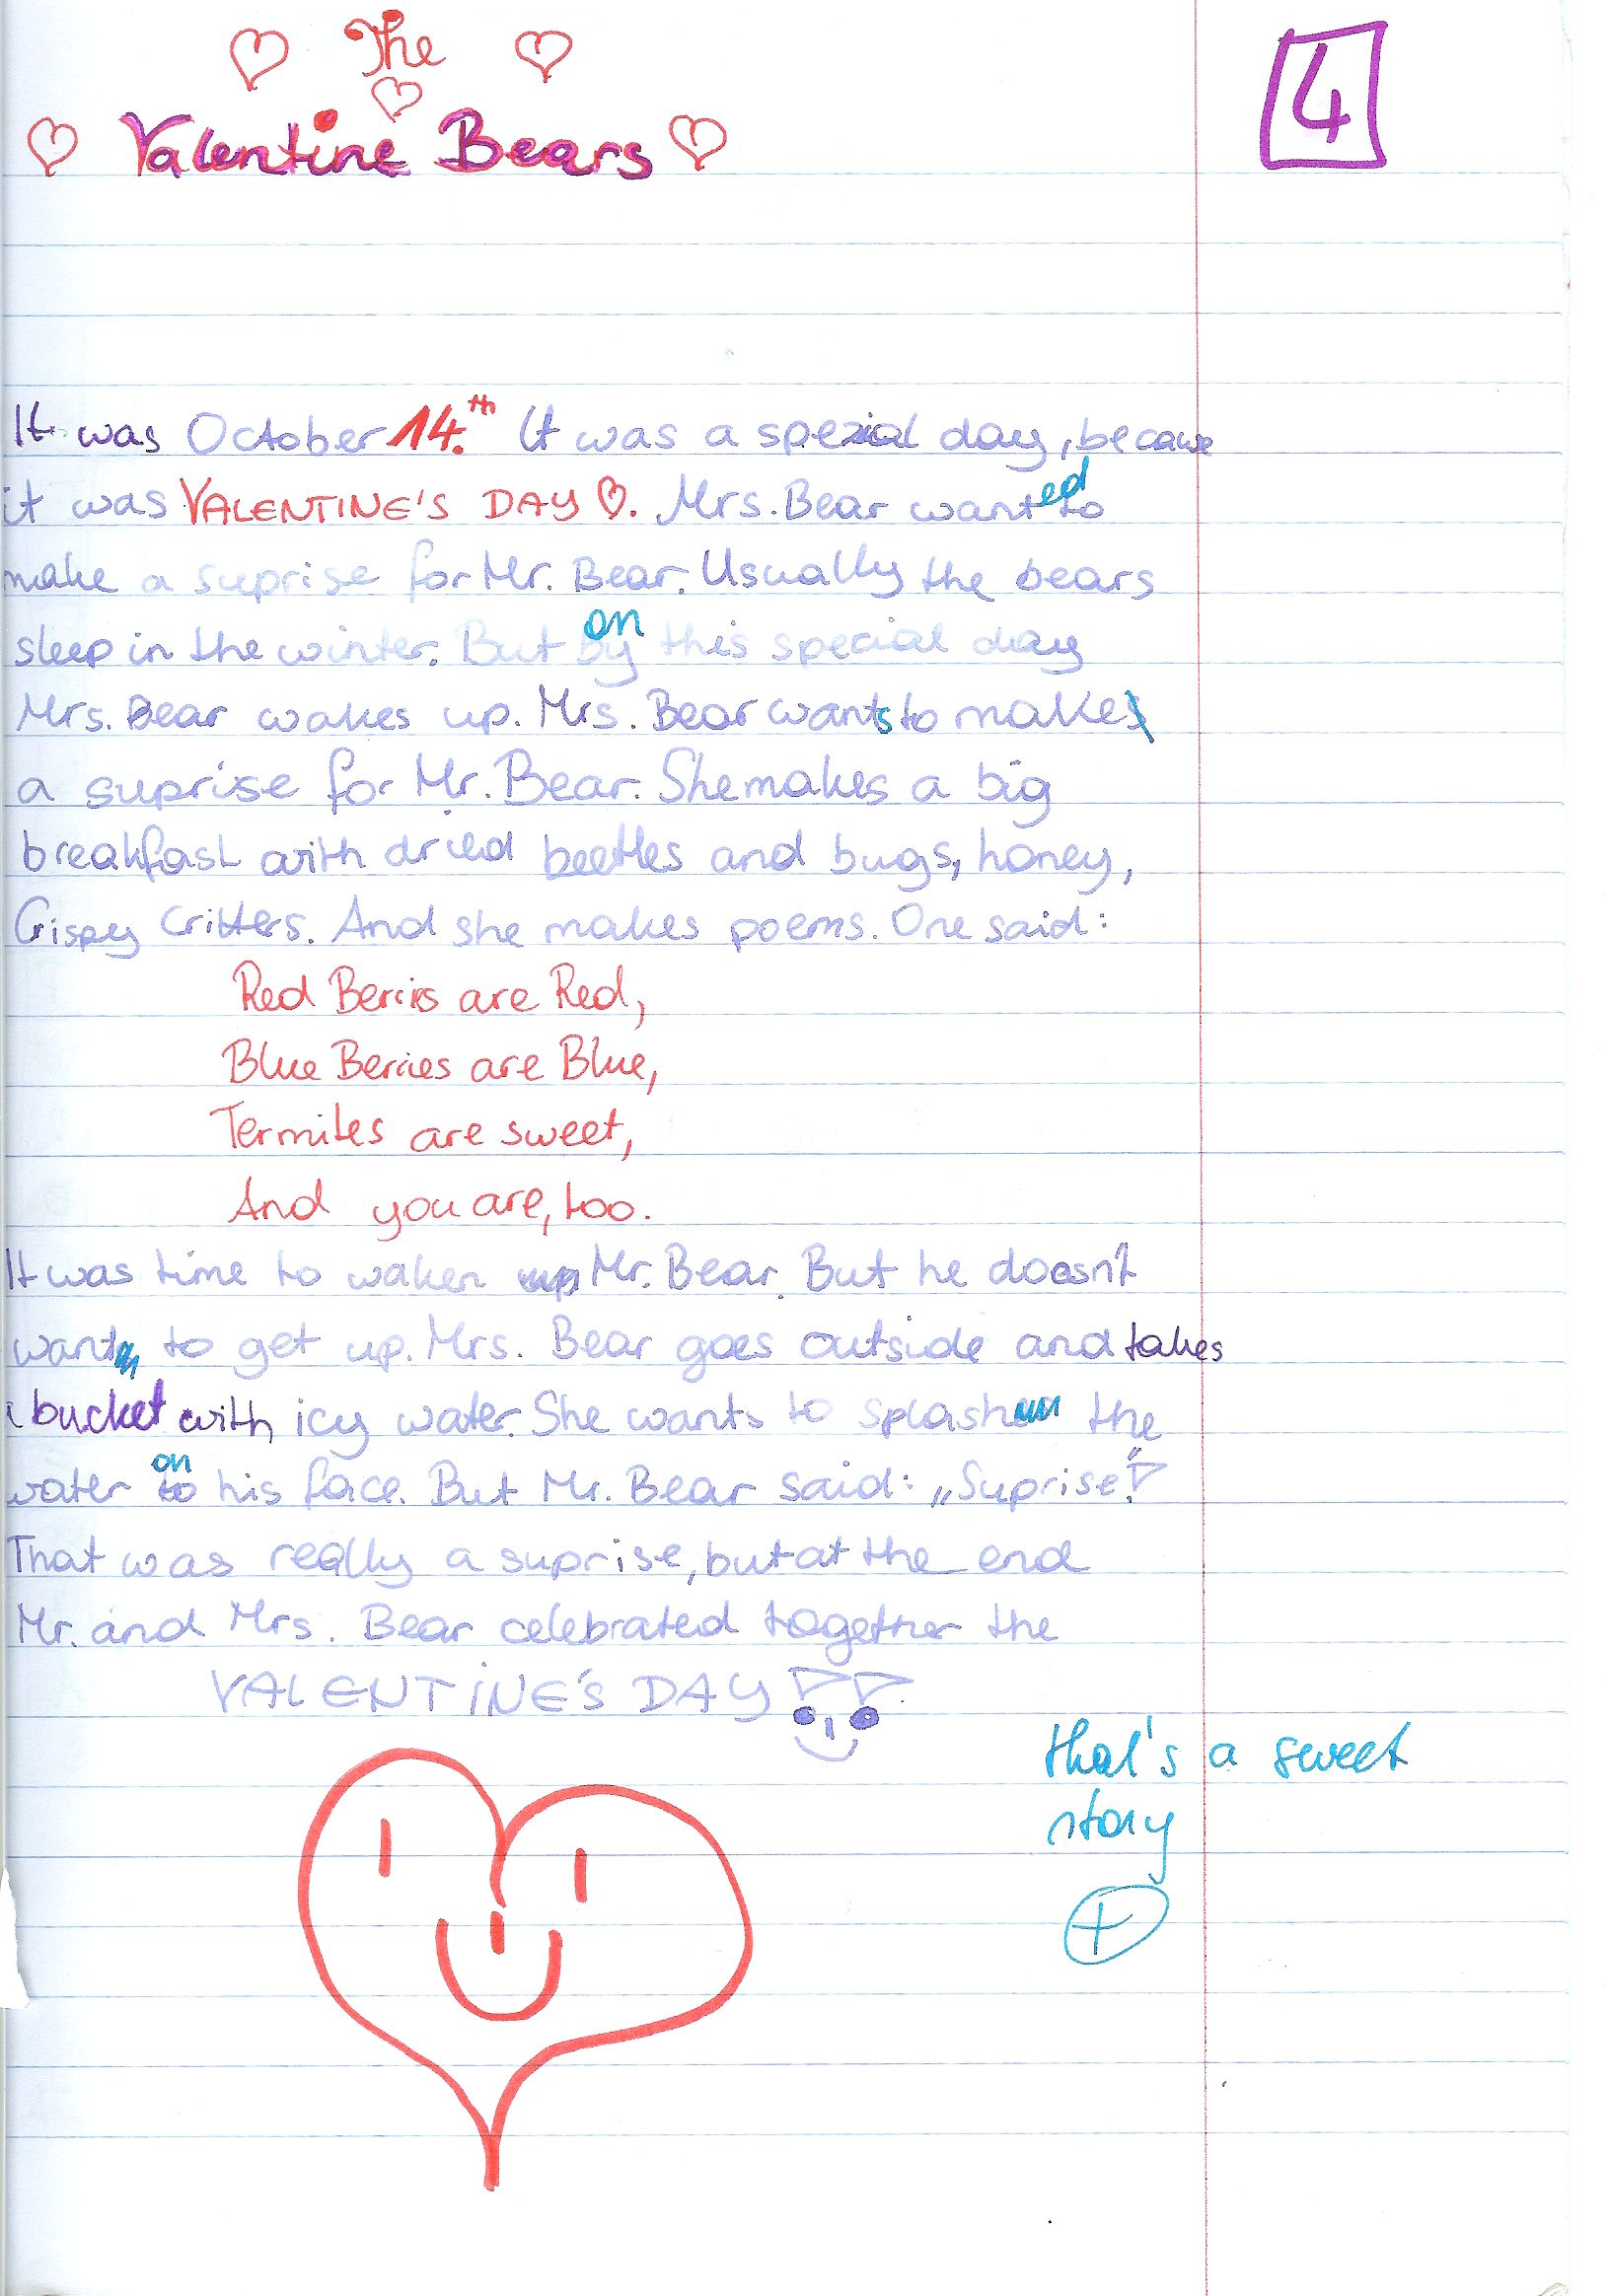 The
Valentine Bears
4
It was October 14.th It was a spezial day, because
it was VALENTINE'S DAY ♡. Mrs. Bear wanted to
make a suprise for Mr. Bear. Usually the bears
sleep in the winter. But by on this special day
Mrs. Bear wakes up. Mrs. Bear wants to makes
a suprise for Mr. Bear. She makes a big
breakfast with dried beetles and bugs, honey,
Crispy Critters. And she makes poems. One said:
Red Berries are Red,
Blue Berries are Blue,
Termites are sweet,
And you are, too.
It was time to waken up Mr. Bear. But he doesn't
want to get up. Mrs. Bear goes outside and takes
a bucket with icy water. She wants to splash the
water to on his face. But Mr. Bear said: „Suprise!"
That was really a suprise, but at the end
Mr. and Mrs. Bear celebrated together the
VALENTINE'S DAY !!
that's a sweet
story
+